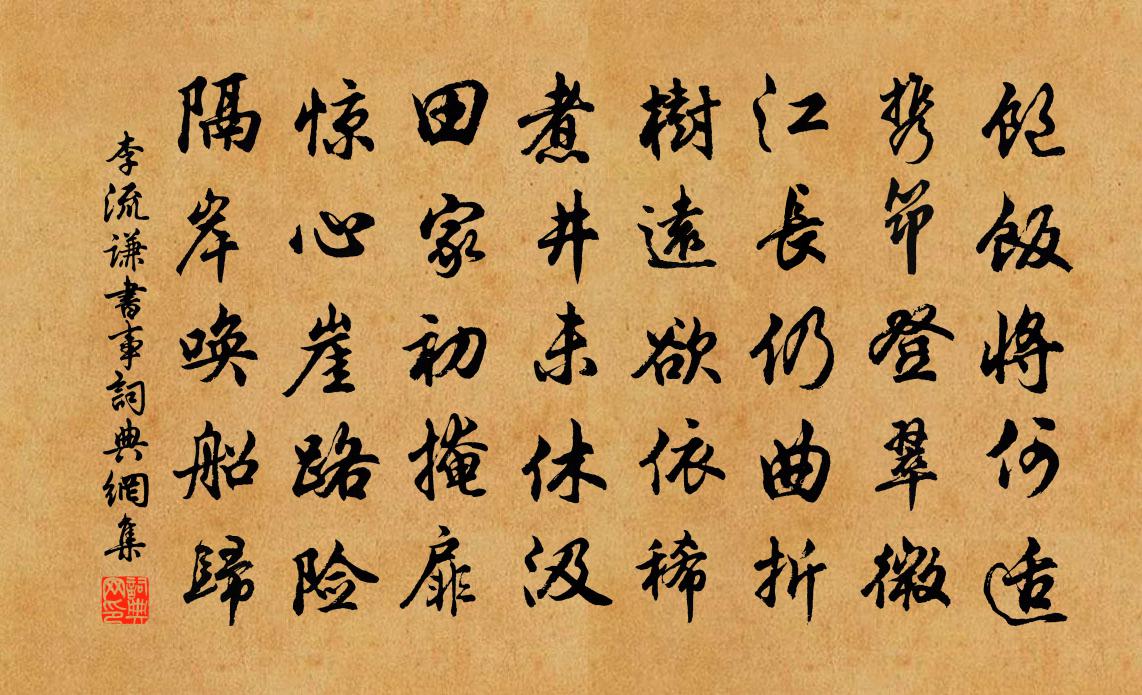 飽飯將何适
携筇登翠微
江長仍曲折
樹遠欲依稀
煮井未休汲
田家初掩扉
惊心崖路险
隔岸喚船歸
李流謙書事詞典網集
詞典网印